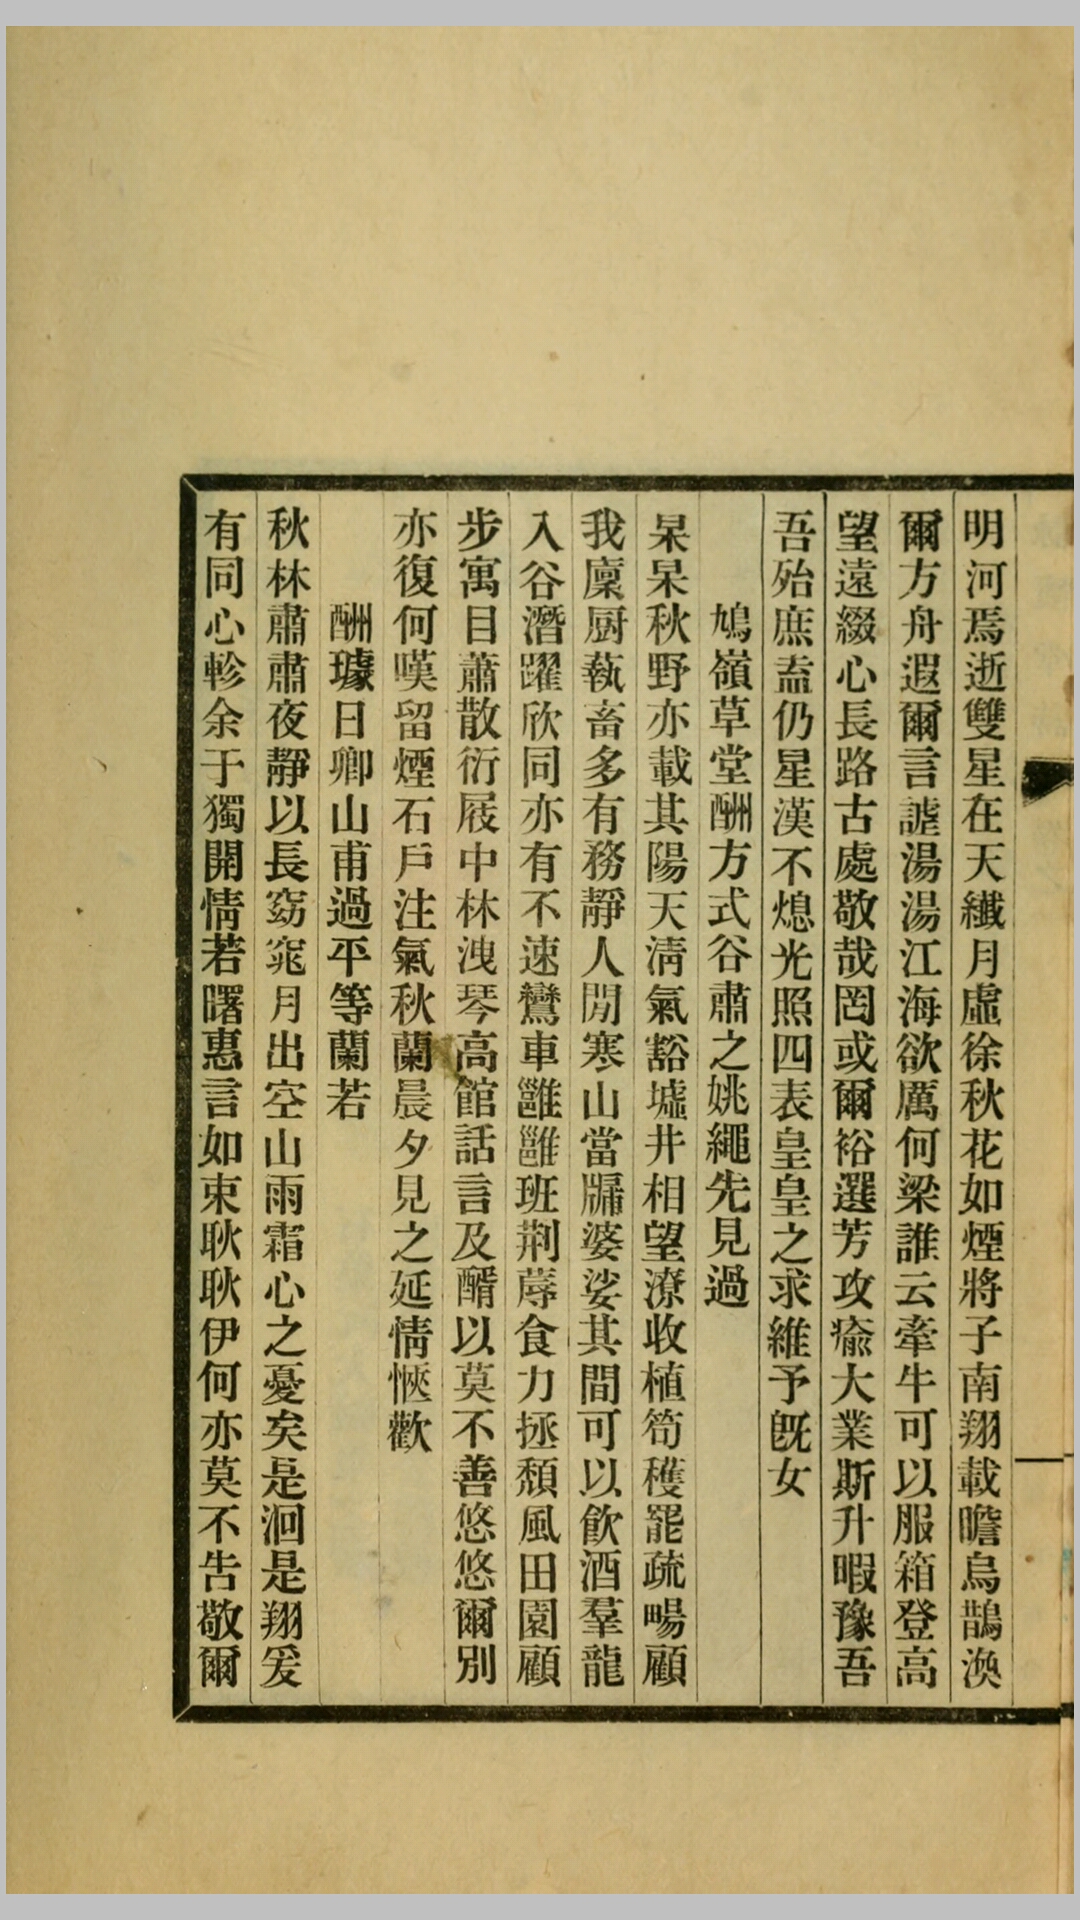 明河焉逝雙星在天纖月虛徐秋花如煙將子南翔載瞻烏鵲渙
爾方舟遐爾言謔湯湯江海欲厲何梁誰云牽牛可以服箱登高
望遠綴心長路古處敬哉罔或爾裕選芳攻瘉大業斯升暇豫吾
吾殆庶盍仍星漢不熄光照四表皇皇之求維予旣女
鳩嶺草堂酬方式谷肅之姚繩先見過
杲杲秋野亦載其陽天淸氣豁墟井相望潦收植筍穫罷疏暘顧
我廩厨蓺畜多有務靜人閒寒山當牖婆娑其間可以飮酒羣龍
入谷潛躍欣同亦有不速鸞車雝雝班荆蓐食力拯頹風田園顧
步寓目蕭散衍屐中林洩琴高館話言及醑以莫不善悠悠爾別
亦復何嘆留煙石戶注氣秋蘭晨夕見之延情愜歡
酬璩日卿山甫過平等蘭若
秋林肅肅夜靜以長窈窕月出空山雨霜心之憂矣是洄是翔爰
有同心軫余于獨開情若曙惠言如束耿耿伊何亦莫不告敬爾